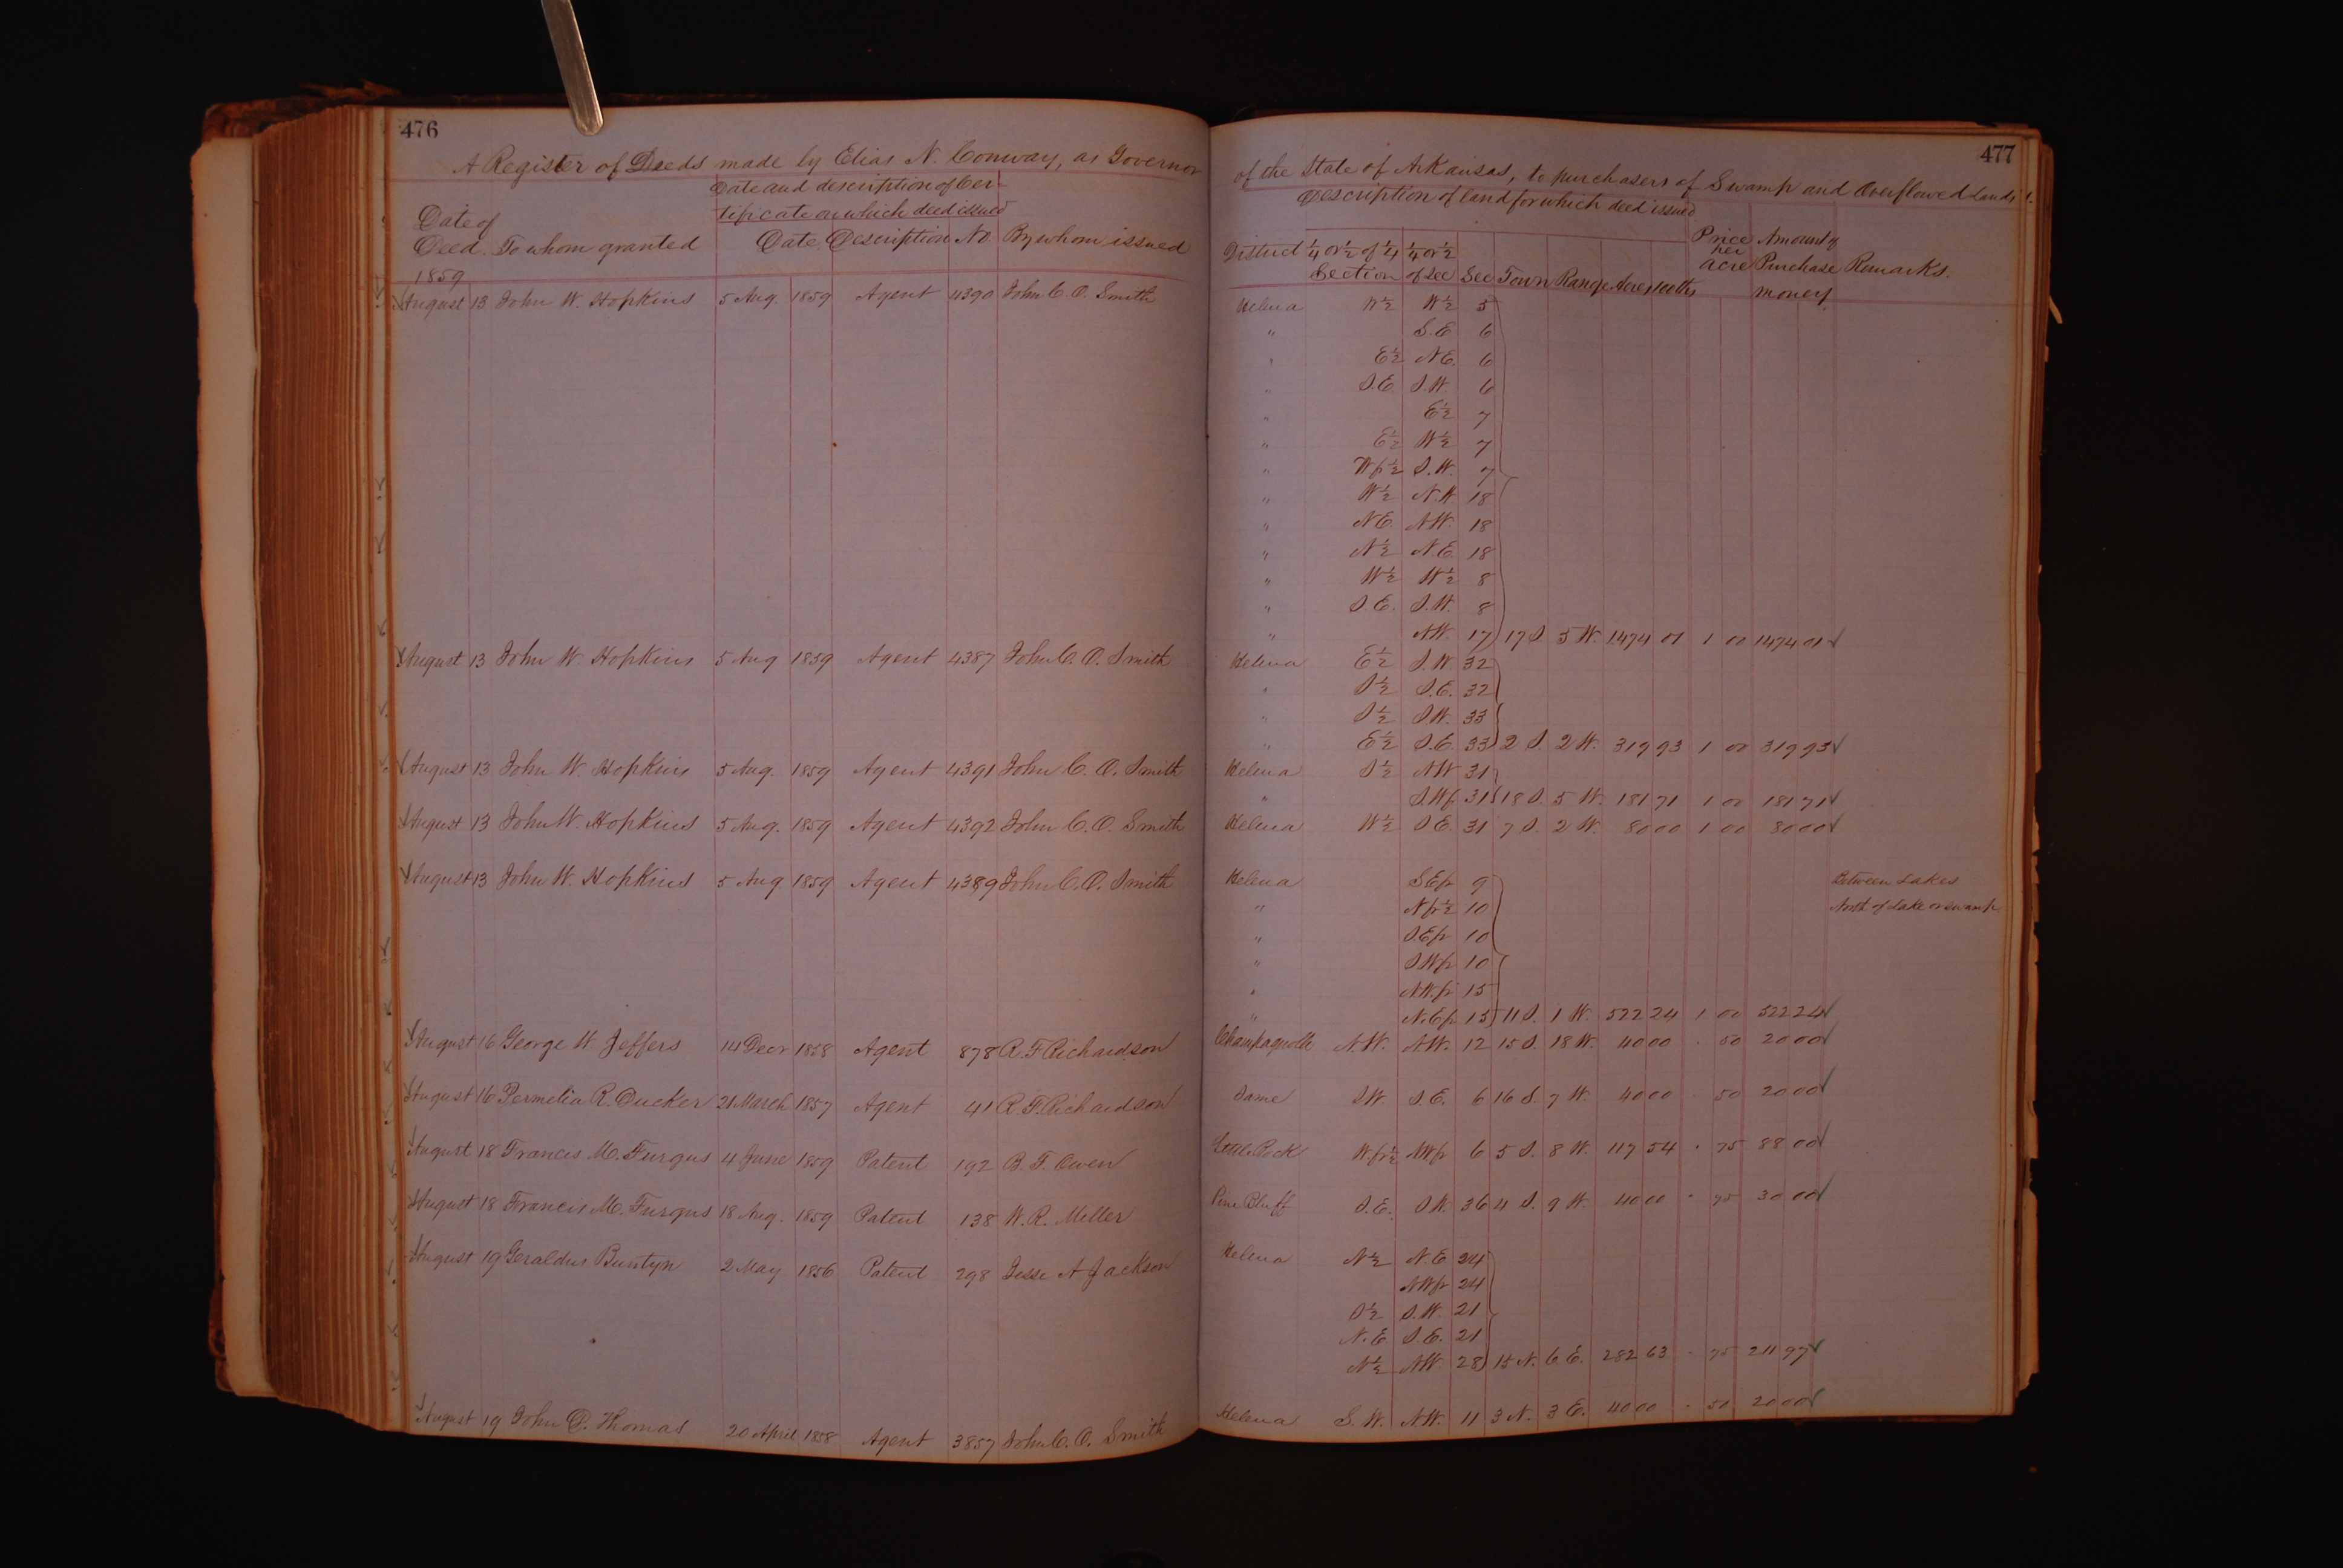 476
A Register of Deeds made by Elias N. Conway, as Governor
Date and description of Cer-
tificate on which deed issued
Date of
Deed. To whom granted Date Description No By whom issued
1859
August 13 John W. Hopkins 5 Aug. 1859 Agent 4390 John C. O. Smith
August 13 John W. Hopkins 5 Aug 1859 Agent 4387 John C. O. Smith
August 13 John W. Hopkins 5 Aug. 1859 Agent 4391 John C. O. Smith
August 13 John W. Hopkins 5 Aug. 1859 Agent 4392 John C. O. Smith
August 13 John W. Hopkins 5 Aug 1859 Agent 4389 John C. O. Smith
August 16 George W Jeffers 14 Decr 1858 Agent 878 R. F. Richardson
August 16 Permelia R. Ducker 21 March 1857 Agent 41 R. F. Richardson
August 18 Francis M. Furgus 4 June 1859 Patent 192 B. F. Owen
August 18 Francis M. Furgus 18 Aug. 1859 Patent 138 W. R. Miller
August 19 Geraldus Buntyn 2 May 1856 Patent 298 Jesse A Jackson
August 19 John D. Thomas 20 April 1858 Agent 3857 John C. O. Smith
477
of the State of Arkansas, to purchasers of Swamp and Overflowed Lands &.
Description of land for which deed issued
District 1/4 or 1/2 of 1/4 1/4 or 1/2 Price Amount of
per
Section of Sec Sec Town Range Acres 100ths acre Purchase Remarks.
money
Helena W 1/2 W 1/2 5
" S.E 6
" E 1/2 N.E. 6
" S.E S.W. 6
" E 1/2 7
" E 1/2 W 1/2 7
" W fr 1/2 S.W. 7
" W 1/2 N.W. 18
" N E N.W. 18
" N 1/2 N.E. 18
" W 1/2 W 1/2 8
" S E. S.W. 8
" N.W. 17 17 S. 5 W. 1474 01 1 00 1474 01 ✓
Helena E 1/2 S.W. 32
" S 1/2 S.E. 32
" S 1/2 S.W. 33
" E 1/2 S.E. 33 2 S. 2 W. 319 93 1 00 319 93 ✓
Helena S 1/2 N.W 31
" S.W fr 31 18 S. 5 W. 181 71 1 00 181 71 ✓
Helena W 1/2 S.E. 31 7 S. 2 W. 80 00 1 00 80 00 ✓
Helena S.E fr 9 Between Lakes
" N fr 1/2 10 North of Lake or swamp
" S.E fr 10
" S W fr 10
" N.W. fr 15
" N.E fr 15 11 S. 1 W. 522 24 1 00 522 24 ✓
Champagnolle N.W. N.W. 12 15 S. 18 W. 40 00 . 50 20 00 ✓
Same S W. S.E. 6 16 S. 7 W. 40 00 . 50 20 00 ✓
Little Rock W. fr 1/2 N W fr 6 5 S. 8 W. 117 54 . 75 88 00 ✓
Pine Bluff S.E. S W. 36 4 S. 9 W. 40 00 . 75 30 00 ✓
Helena N 1/2 N.E. 24
N W fr 24
S 1/2 S.W. 21
N.E S.E. 21
N 1/2 N.W. 28 15 N. 6 E. 282 63 . 75 211 97 ✓
Helena S. W. N.W. 11 3 N. 3 E. 40 00 . 50 20 00 ✓